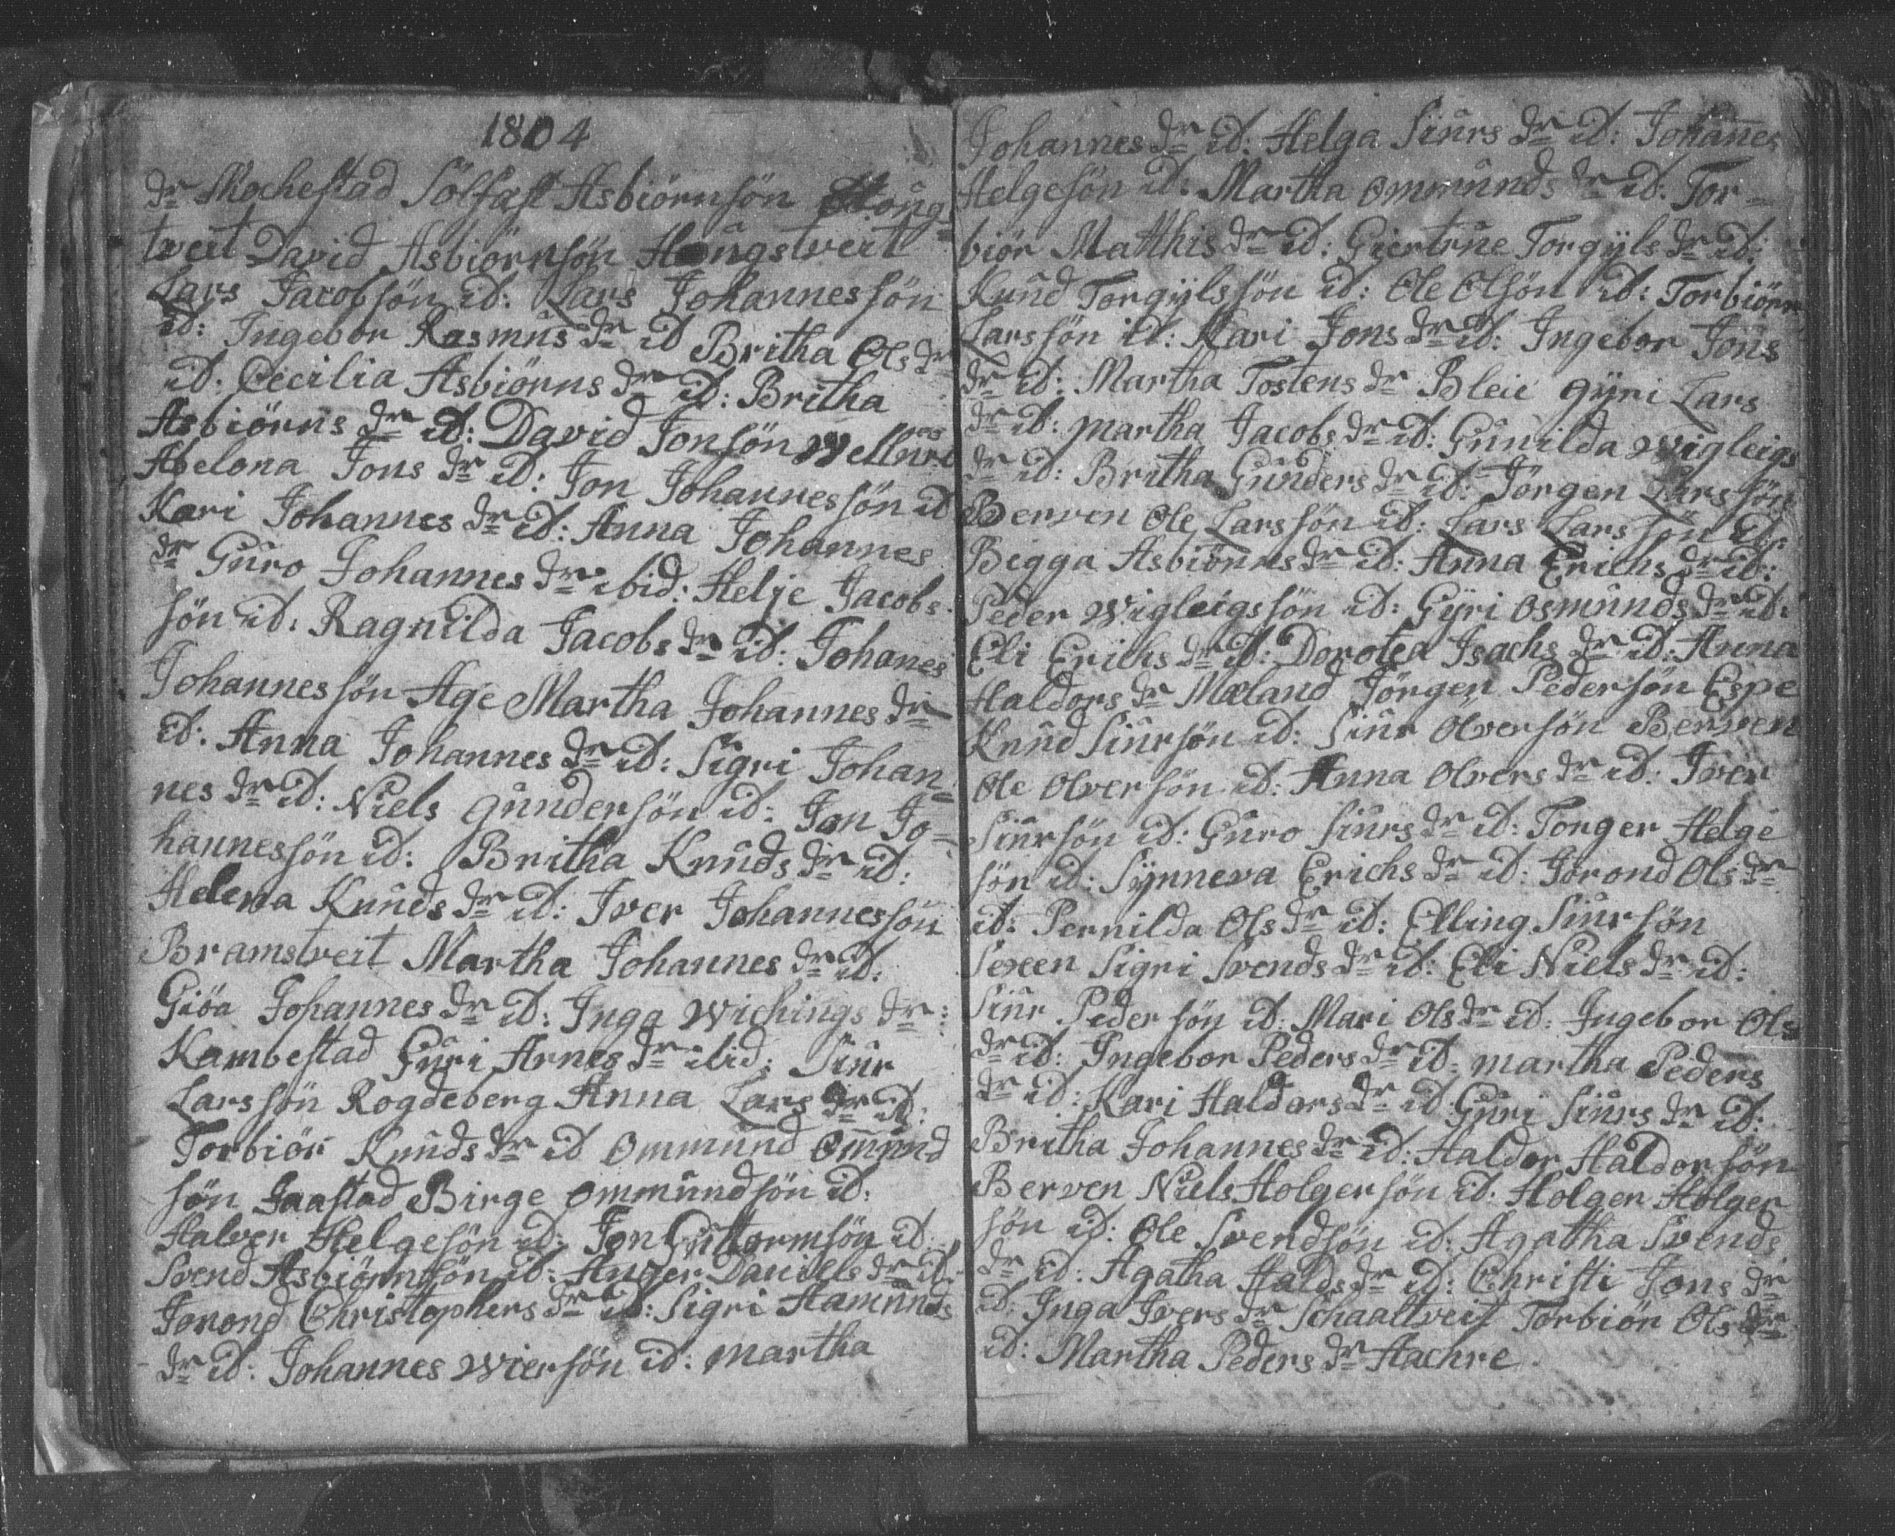 1804
dr Skochestad Sölfast Asbiörnsön Houngs=
tveit David Asbiörnsön Houngstveit
Lars Jacobsön id: Lars Johannessön
id: Ingebor Rasmus dr id Britha Ols dr
id: Cecilia Asbiönns dr id: Britha
Asbiörns dr id: David Jonsön Wellure
Abelona Jons dr id: Jon Johannessön id
Kari Johannes dr id: Anna Johannes
dr Guro Johannes dr ibid: Helje Jacobs
sön id: Ragnilda Jacobs dr id: Johanes
Johannessön Age Martha Johannes dr
id: Anna Johannes dr id: Sigri Johan=
nes dr id: Niels Gundersön id: Jon Jo=
hannessön id: Britha Knuds dr id:
Helena Knuds dr id: Iver Johannessön
Bramstveit Martha Johannes dr id:
Giöa Johannes dr id: Inga Wichings dr:
Kambestad Guri Arnes dr ibid: Siur
Larssön Rogdeberg Anna Lars dr id:
Torbiör Knuds dr id Ommund Omund
sön Jaastad Birge Ommundsön id:
Halver Helgesön id: Jon Guttormsön id:
Svend Asbiörnsön id: Anger Daniels dr id:
Jorond Christophers dr id: Sigri Hamunds
dr id: Johannes Wiersön id: Martha
Johannes dr id: Helga Siurs dr id: Johannes
Helgesön id: Martha Ommunds dr id: Tor=
biör Matthis dr id: Giertrue Torgyls dr id:
Knud Torgylssön id: Ole Olsön id: Torbiörn
Larssön id: Kari Jons dr id: Ingebor Jons
dr id: Martha Tostens dr Bleie Gyri Lars
dr id: Martha Jacobs dr id: Gunilda Wigleigs
dr id: Britha Gunders dr id: Jörgen Larssön
Berven Ole Larssön id: Lars Larssön id:
Begga Asbiönns dr id: Anna Erichs dr id:
Peder Wigleigssön id: Gyri Osmunds dr id:
Eli Erichs dr id: Dorotea Isachs dr id: Anna
Haldors dr Mæland Jörgen Pedersön Espe
Knud Siursön id: Siur Olversön Berven
Ole Olversön id: Anna Olvers dr id: Iver
Siursön id: Guro Siurs dr id: Torger Helge
sön id: Synneva Erichs dr id: Jorond Ols dr
id: Pernilda Ols dr id: Elling Siursön
Sexen Sigri Svends dr id: Eli Niels dr id:
Siur Pedersön id: Mari Ols dr id: Ingebor Ols
dr id: Ingebor Peders dr id: Martha Peders
dr id: Kari Haldors dr id Guri Siurs dr id:
Britha Johannes dr id: Haldor Haldorsön
Berven Niels Holgersön id: Holger Holger
sön id: Ole Svendsön id: Agatha Svends
dr id: Agatha Halds dr id: Christi Jons dr
id: Inga Ivers dr Schaaltveit Torbiör Ols dr
id: Martha Peders dr Hachre